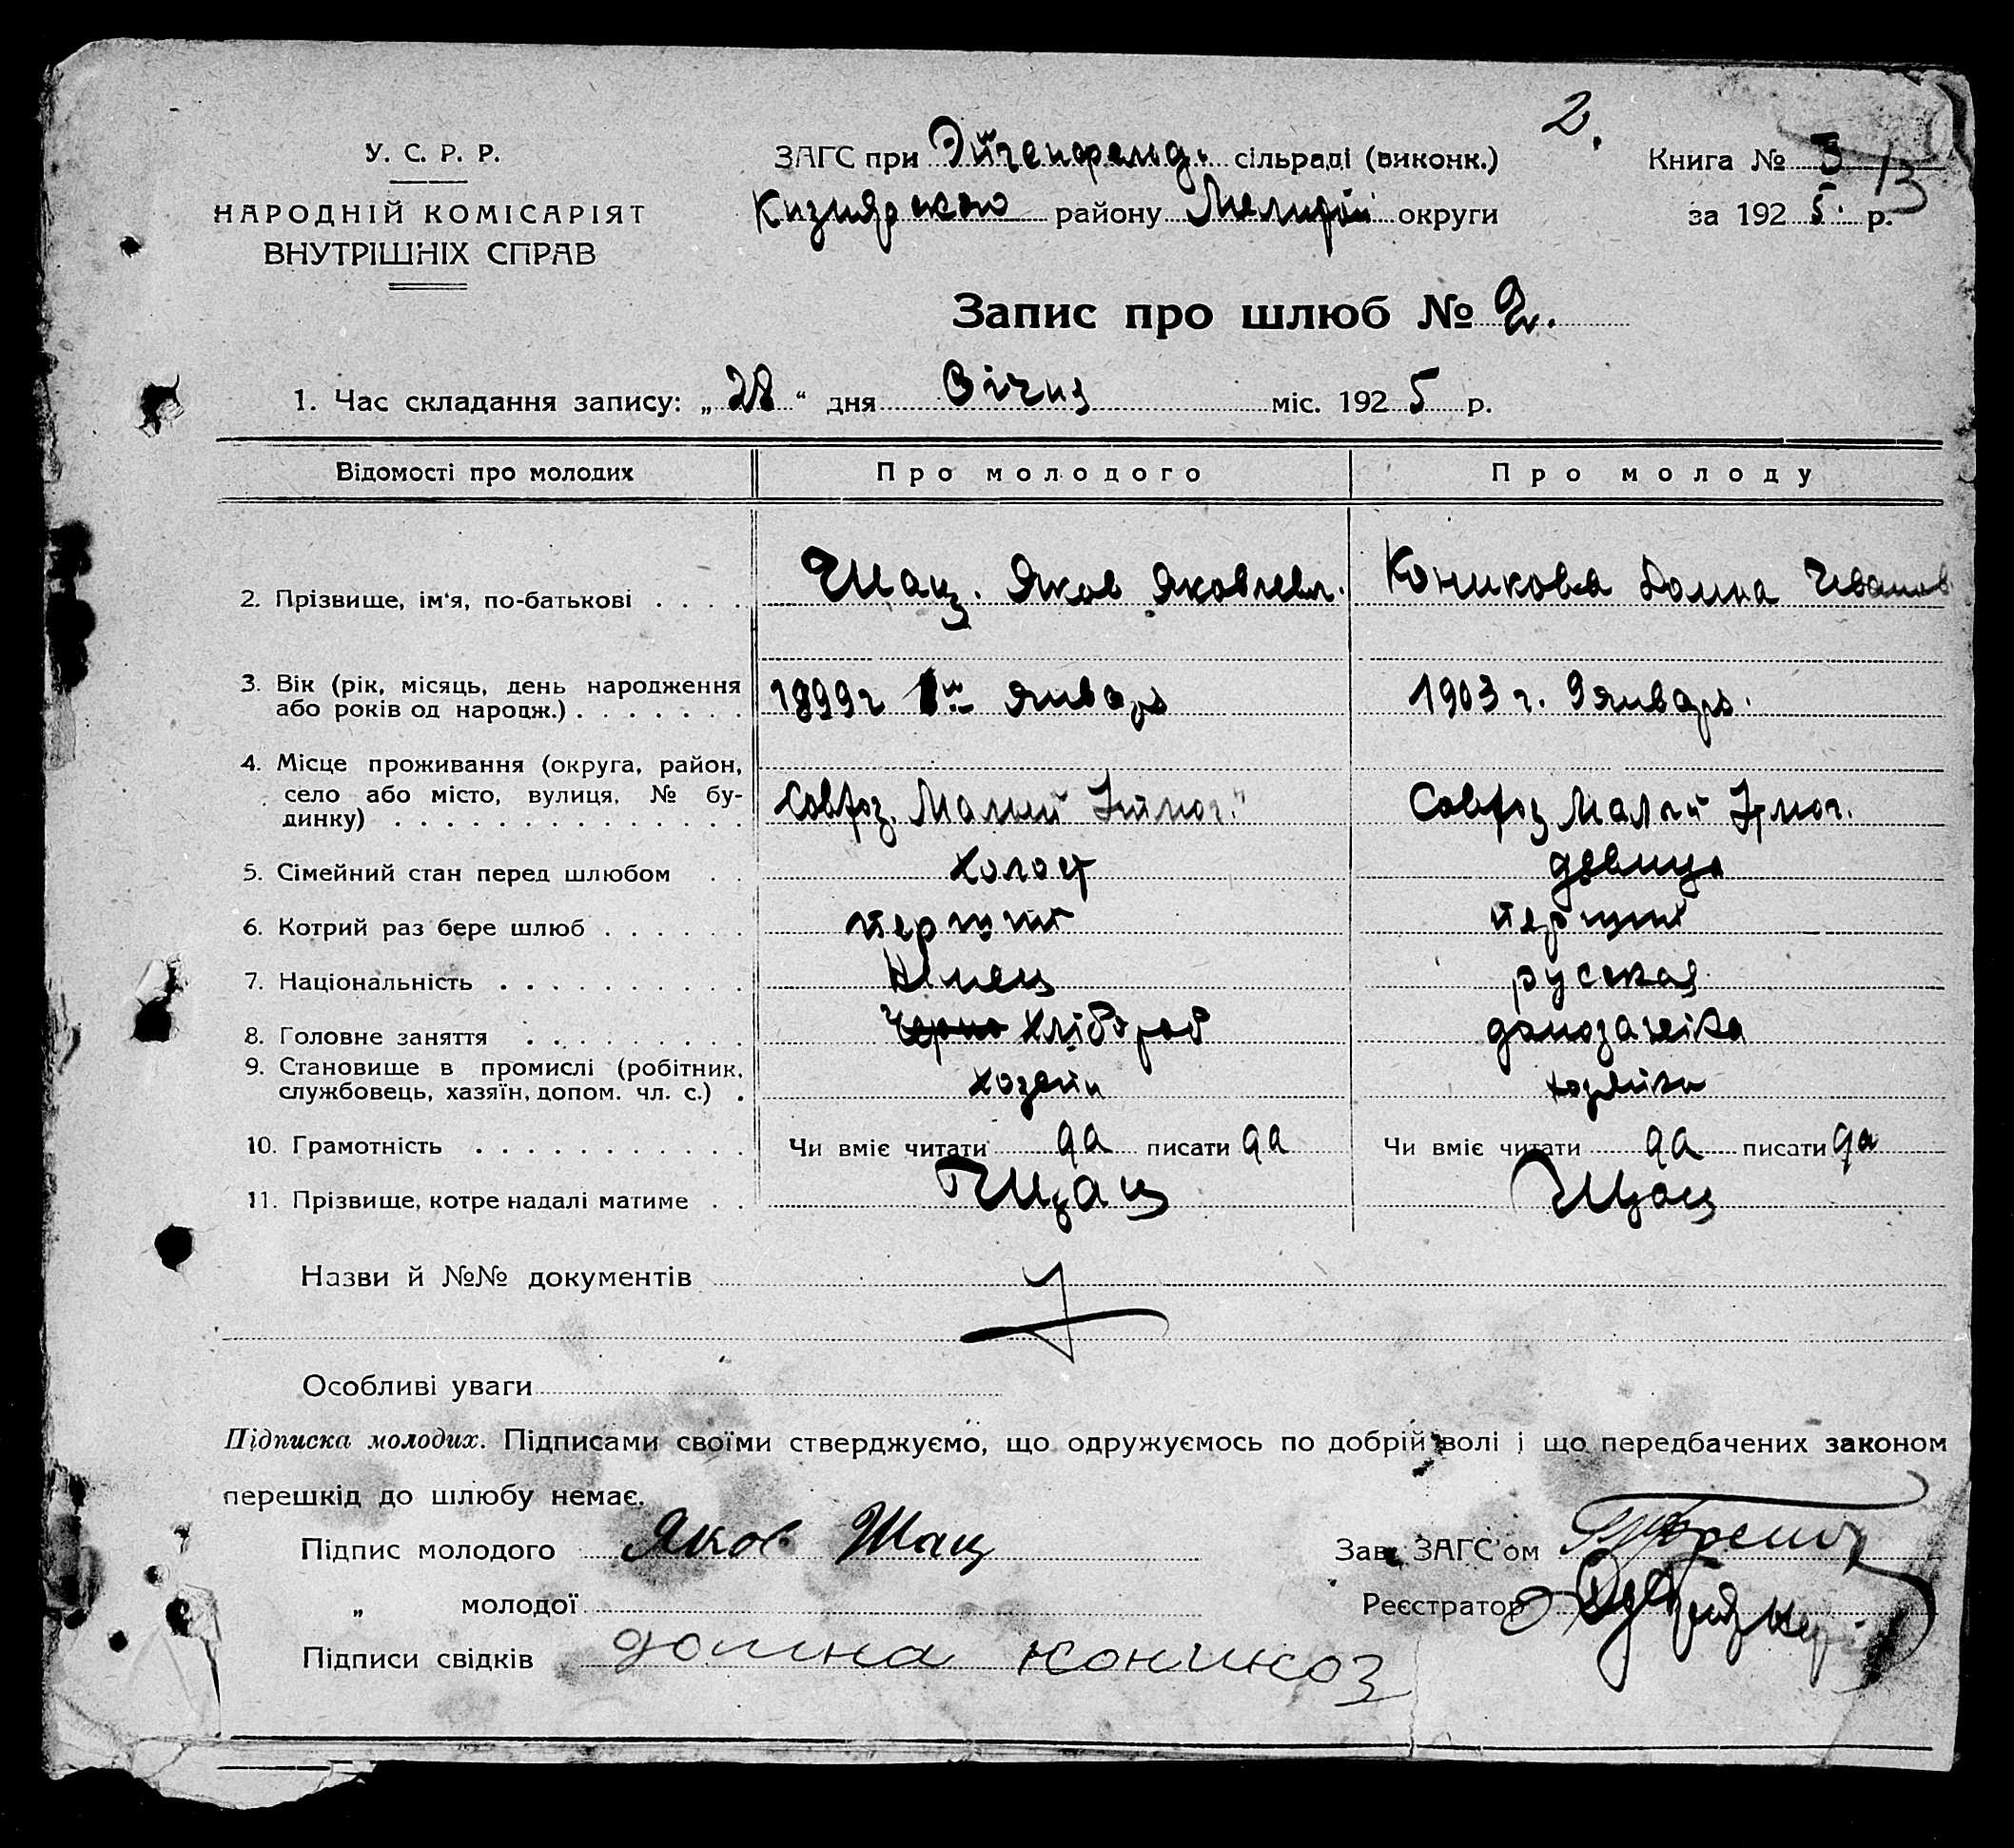 2.
У. С. Р. Р.
НАРОДНІЙ КОМІСАРІЯТ
ВНУТРІШНІХ СПРАВ
ЗАГС при Эйгенфельд. сільраді (виконк.)
Кизиярского району Мелитрій округи
Книга № 3
13
за 1925. р.
Запис про шлюб № 2.
1. Час складання запису: „28“ дня Січня міс. 1925 р.
Відомості про молодих Про молодого Про молоду
2. Прізвище, ім'я, по-батькові . . . . Шац. Яков Яковлевл. Коникова Домна Иванов
3. Вік (рік, місяць, день народження
або років од народж.) . . . . . . . 1899 г января 1903 г. 9 январь.
4. Місце проживання (округа, район,
село або місто, вулиця, № бу-
динку) . . . . . . . . . . . . . . . Совхоз. Малый Совхоз Малый
5. Сімейний стан перед шлюбом . . холост девица
6. Котрий раз бере шлюб . . . . . . перший перший
7. Національність . . . . . . . . . . німец русская
8. Головне заняття . . . . . . . . . Хлібороб домохазяйка
9. Становище в промислі (робітник,
службовець, хазяїн, допом. чл. с.) . хозяин хозяйка
10. Грамотність . . . . . . . . . . . Чи вміє читати да писати да Чи вміє читати да писати да
11. Прізвище, котре надалі матиме . . Шац Шац
Назви й №№ документів
Особливі уваги
Підписка молодих. Підписами своїми стверджуємо, що одружуємось по добрій волі і що передбачених законом
перешкід до шлюбу немає.
Підпис молодого Яков Шац Зав. ЗАГС'ом
„ молодої Реєстратор
Підписи свідків домна коникоз